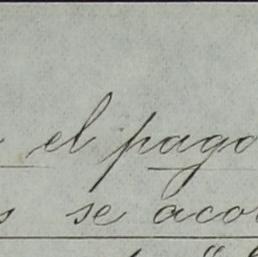 el pago
se aco